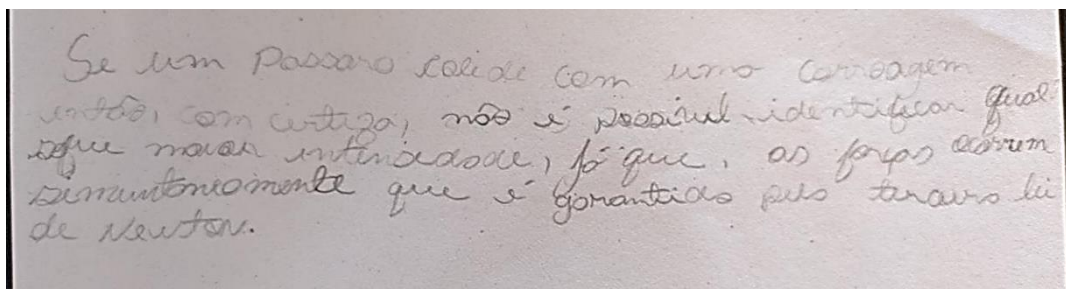 Se um Passaro colide com uma carroagem
então, com certeza, não é possivel identificar qual
sofre maior intencidade, já que, as forças ocorrem
simuntoneamente que é garantido pela terceira lei
de Newton.